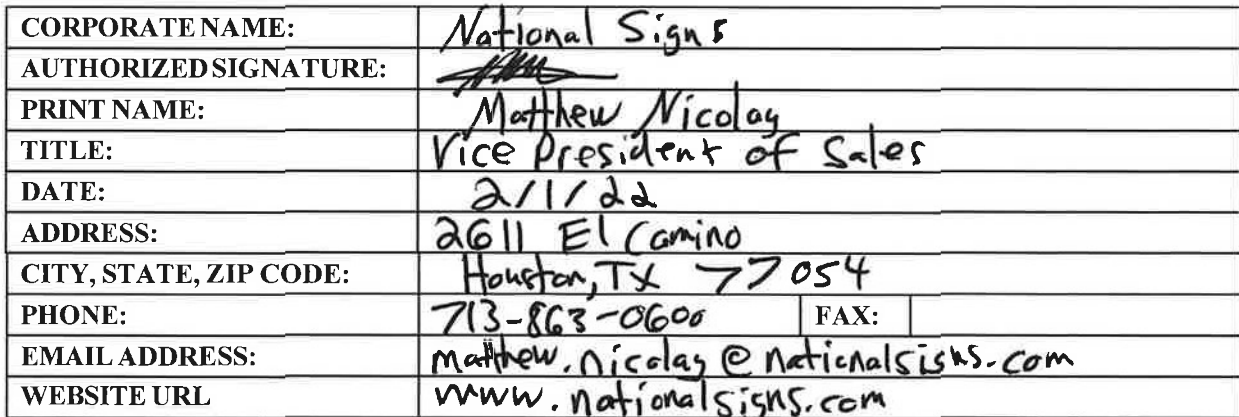 CORPORATE NAME: National Signs
AUTHORIZED SIGNATURE:
PRINT NAME: Matthew Nicolay
TITLE: Vice President of Sales
DATE: 2/1/22
ADDRESS: 2611 El Camino
CITY, STATE, ZIP CODE: Houston, TX 77054
PHONE: 713-863-0600 FAX:
EMAIL ADDRESS: matthew.nicolay@nationalsigns.com
WEBSITE URL www.nationalsigns.com